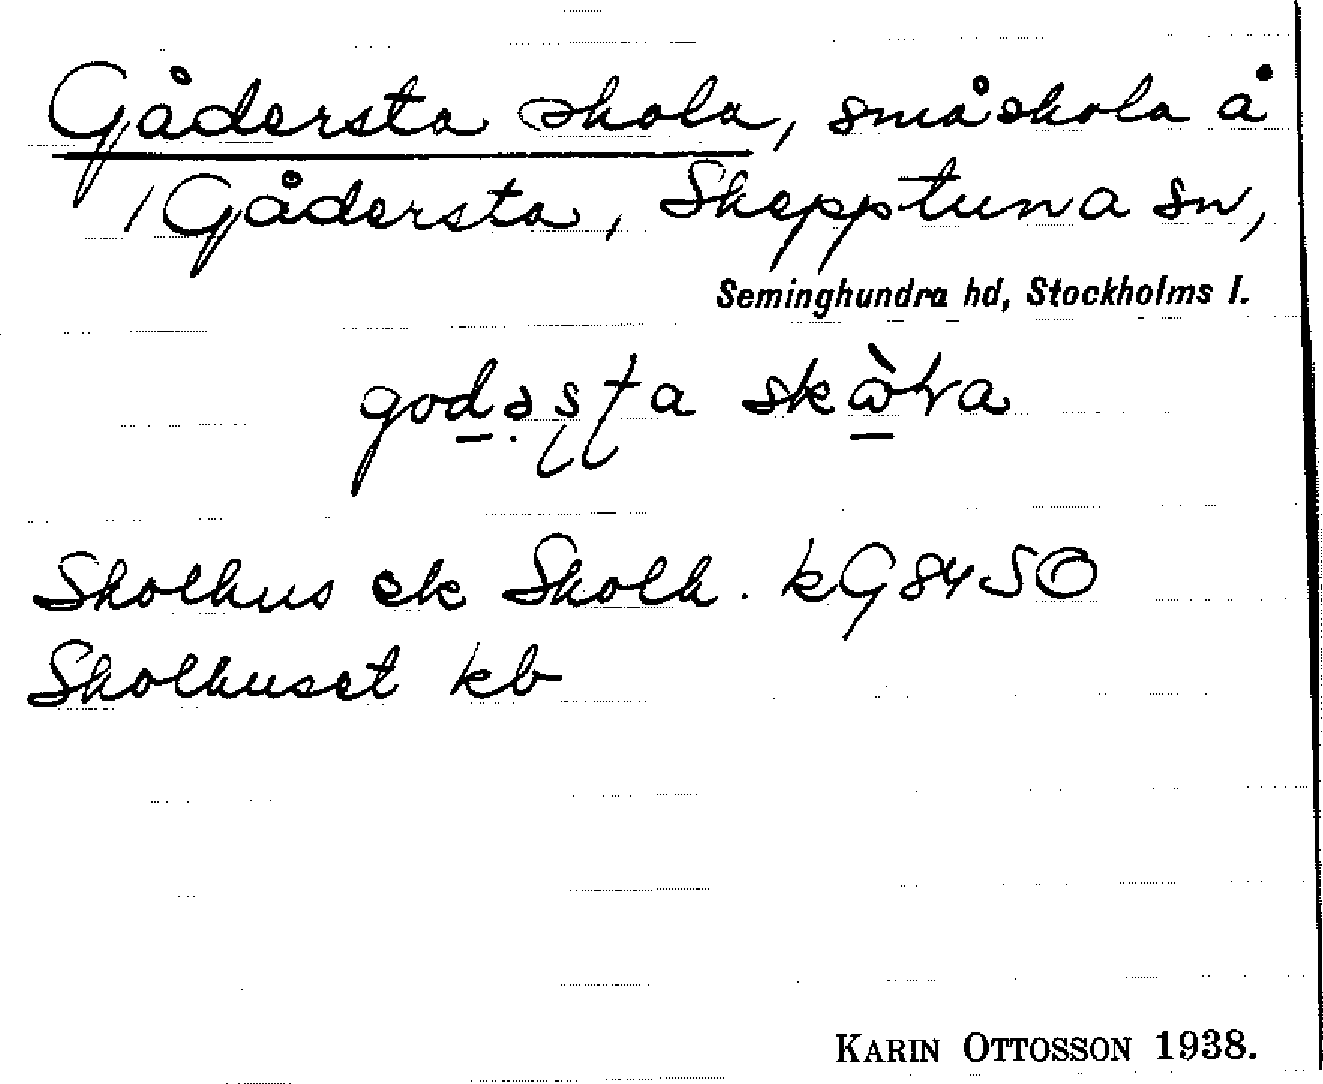 Gådersta skola, småskola å
/Gådersta, Skepptuna sn,
Seminghundra hd, Stockholms l.
Skolhus ek Skolh. kG84SO
Skolhuset kb
KARIN OTTOSSON 1938.